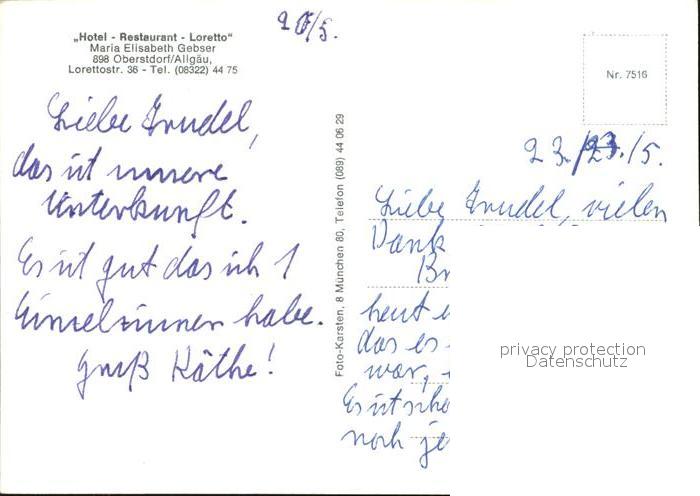 „Hotel - Restaurant - Loretto“
Maria Elisabeth Gebser
898 Oberstdorf/Allgäu,
Lorettostr. 36 - Tel. (08322) 44 75
20/5.
Liebe Trudel,
das ist unsere
Unterkunft.
Es ist gut das ich 1
Einzelzimmer habe.
Gruß Käthe!
Foto-Karsten, 8 München 80, Telefon (089) 44 06 29
Nr. 7516
23./5.
Liebe Trudel, vielen
Dank
Br
heut
das es
war,
Es ist scho
noch je
privacy protection
Datenschutz